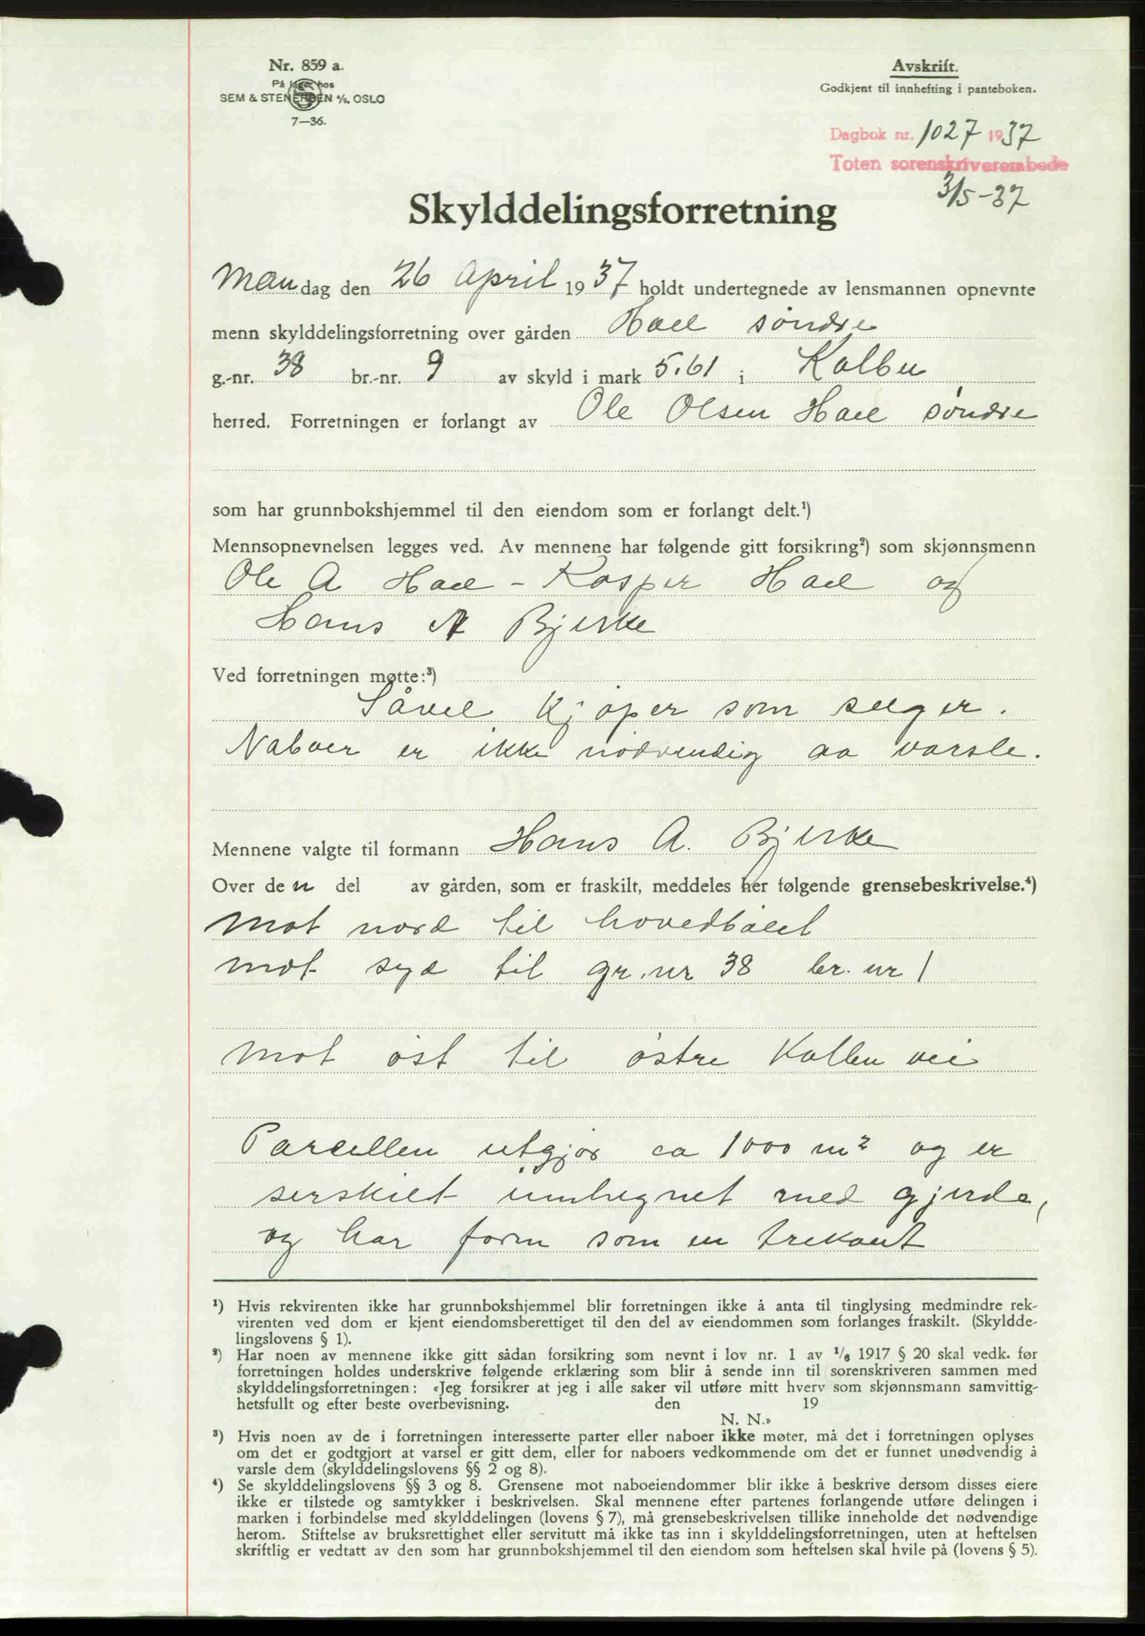 Nr. 859 a.
På lager hos
SEM & STENERSEN A/S, OSLO
7—36.
Avskrift.
Godkjent til innhefting i panteboken.
Dagbok nr. 1027 1937
Toten sorenskriverembede
3/5-37
Skylddelingsforretning
Mandag den 26 April 1937 holdt undertegnede av lensmannen opnevnte
menn skylddelingsforretning over gården Hoel søndre
g.-nr. 38 br.-nr. 9 av skyld i mark 5.61 i Kolbu
herred. Forretningen er forlangt av Ole Olsen Hoel søndre
som har grunnbokshjemmel til den eiendom som er forlangt delt.¹)
Mennsopnevnelsen legges ved. Av mennene har følgende gitt forsikring²) som skjønnsmenn
Ole A Hoel - Kasper Hoel og
Hans A Bjerke
Ved forretningen møtte:³)
Såvel kjøper som selger.
Naboer er ikke nødvendig aa varsle.
Mennene valgte til formann Hans A. Bjerke
Over den del av gården, som er fraskilt, meddeles her følgende grensebeskrivelse.⁴)
mot nord til hovedbølet
mot syd til gr.nr 38 br. nr 1
mot øst til østre Kolbu vei
Parcellen utgjør ca 1000 m² og er
serskilt innhegnet med gjerde,
og har form som en trekant
¹) Hvis rekvirenten ikke har grunnbokshjemmel blir forretningen ikke å anta til tinglysing medmindre rek-
virenten ved dom er kjent eiendomsberettiget til den del av eiendommen som forlanges fraskilt. (Skyldde-
lingslovens § 1).
²) Har noen av mennene ikke gitt sådan forsikring som nevnt i lov nr. 1 av 1/6 1917 § 20 skal vedk. før
forretningen holdes underskrive følgende erklæring som blir å sende inn til sorenskriveren sammen med
skylddelingsforretningen: «Jeg forsikrer at jeg i alle saker vil utføre mitt hverv som skjønnsmann samvittig-
hetsfullt og efter beste overbevisning. den 19
N. N.»
³) Hvis noen av de i forretningen interesserte parter eller naboer ikke møter, må det i forretningen oplyses
om det er godtgjort at varsel er gitt dem, eller for naboers vedkommende om det er funnet unødvendig å
varsle dem (skylddelingslovens §§ 2 og 8).
⁴) Se skylddelingslovens §§ 3 og 8. Grensene mot naboeiendommer blir ikke å beskrive dersom disses eiere
ikke er tilstede og samtykker i beskrivelsen. Skal mennene efter partenes forlangende utføre delingen i
marken i forbindelse med skylddelingen (lovens § 7), må grensebeskrivelsen tillike inneholde det nødvendige
herom. Stiftelse av bruksrettighet eller servitutt må ikke tas inn i skylddelingsforretningen, uten at heftelsen
skriftlig er vedtatt av den som har grunnbokshjemmel til den eiendom som heftelsen skal hvile på (lovens § 5).